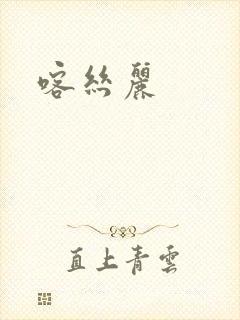 喀絲麗
直上青雲